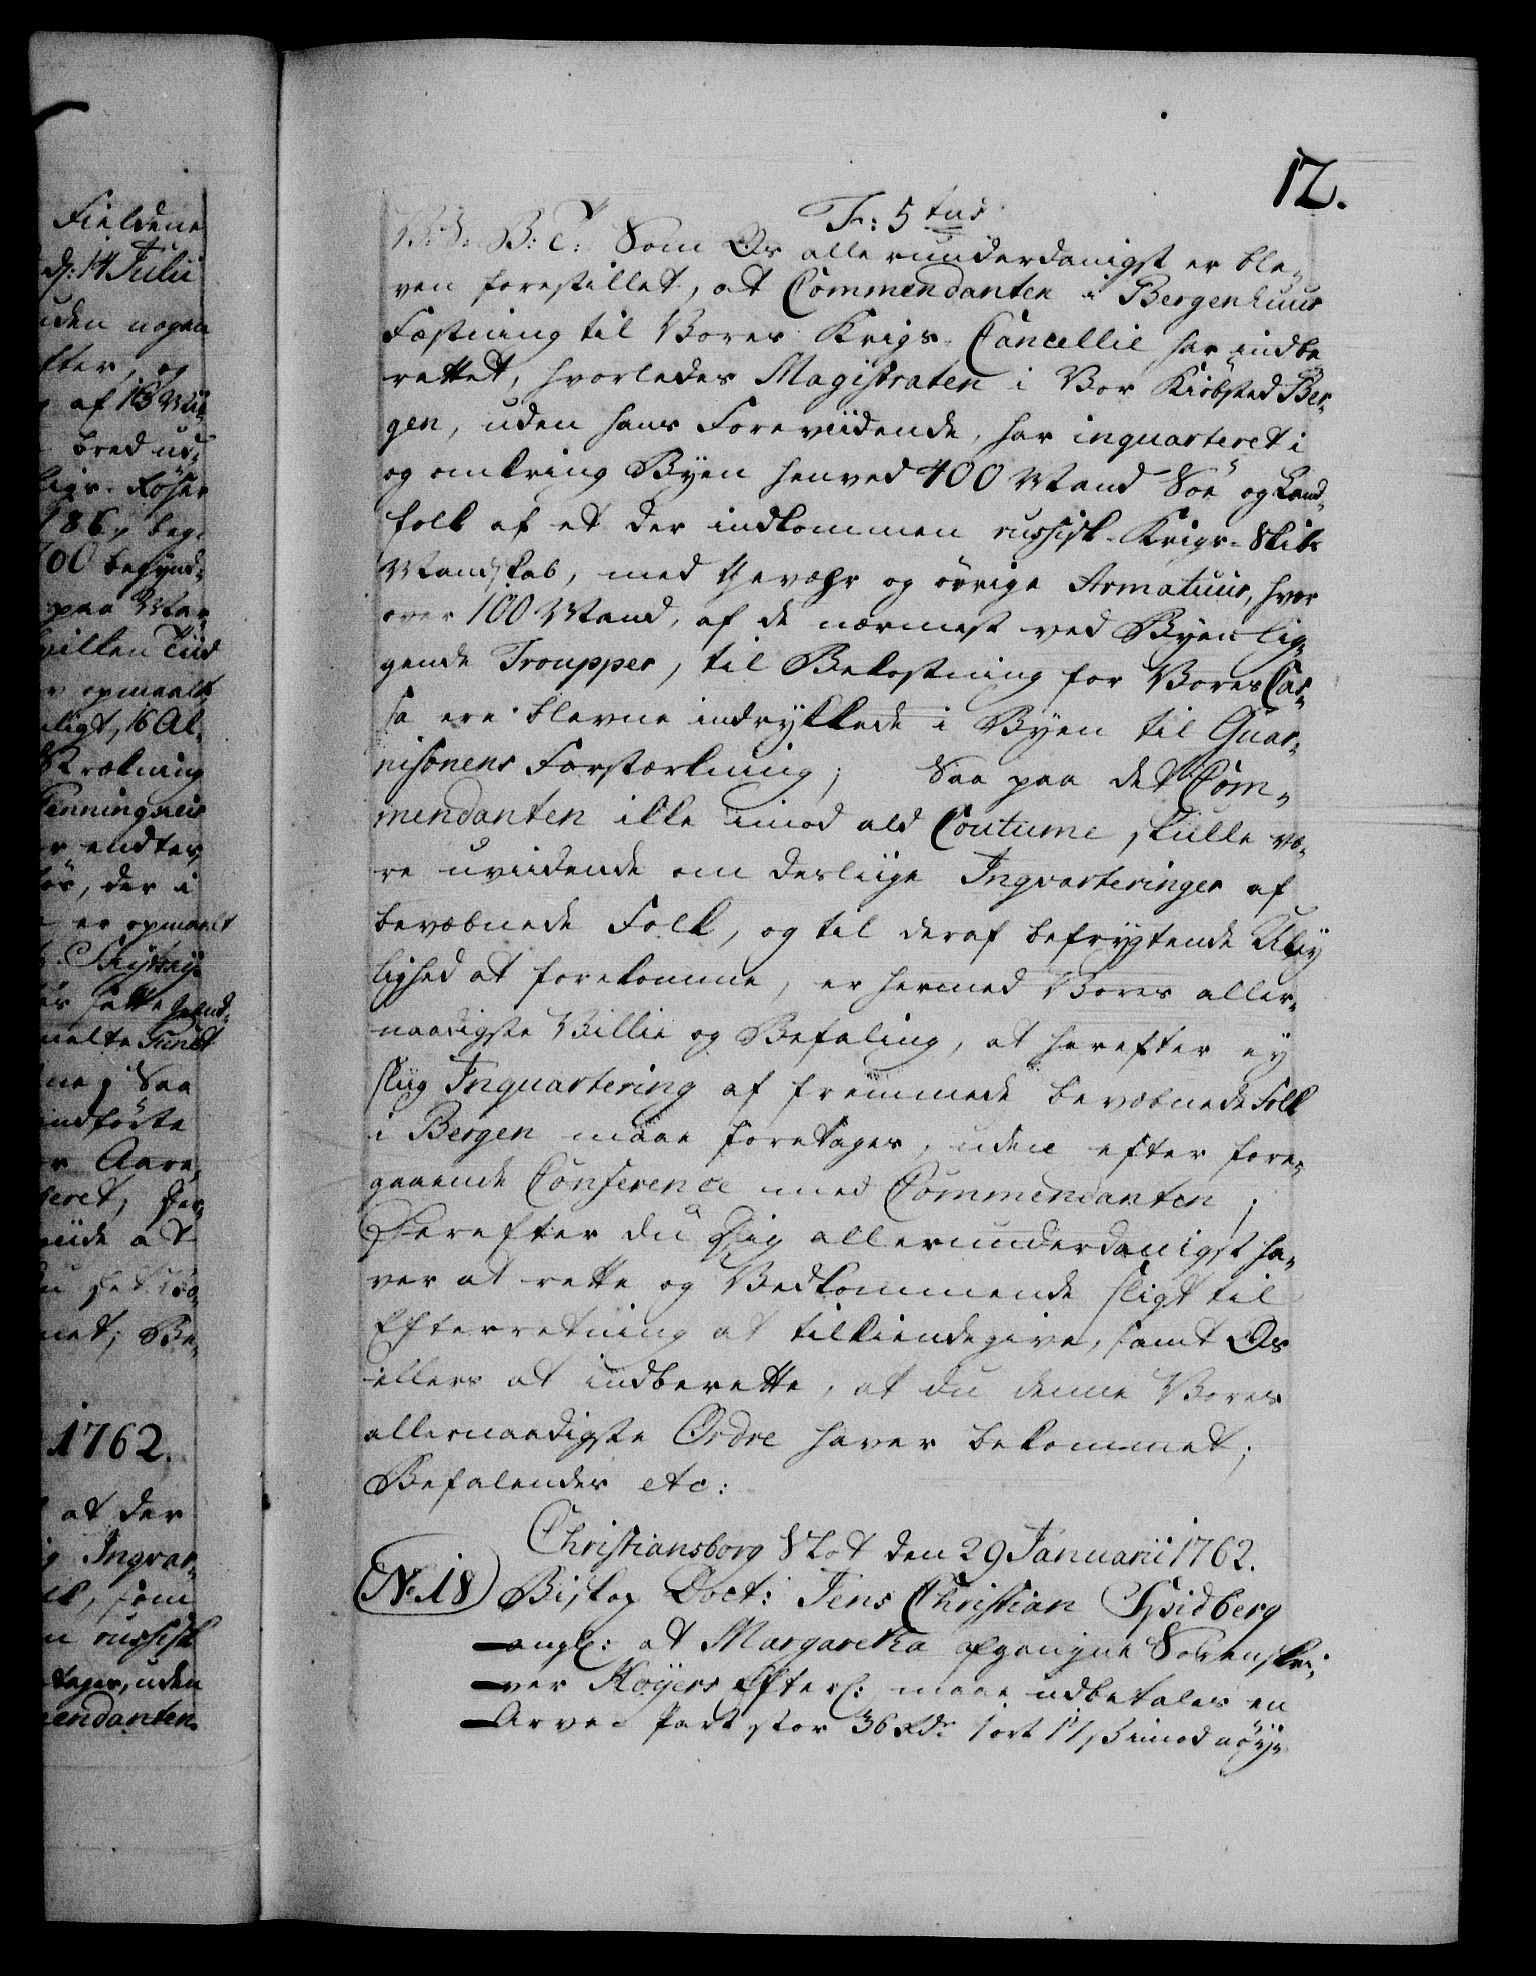 12.
Fr: 5tus
V: G: B: T: Som Os allerunderdanigst er ble-
ven forestillet, at Commendanten i Bergenhuus
Fæstning til Vores Krigs-Cancellie har indbe
rettet, hvorledes Magistraten i Vor Kiöbsted Ber-
gen, uden hans Foreviidende, har inquarteret i
og omkring Byen henved 400 Mand Söe og Land-
folk af et der indkommen russisk-Krigs-Skibs
Mandskab, med Gevæhr og övrige Armatuur, hvor
over 100 Mand, af de nærmest ved Byen lig-
gende Troupper, til Bekostning for Vores Cas-
sa ere blevne indrykkede i Byen til Guar-
nisonens Forstærkning; Saa paa det Com-
mendanten ikke imod ald Coutume skulle væ-
re uviidende om desliige Ingvarteringer af
bevæbnede Folk, og til deraf befrygtende Uley
lighed at forekomme, er hermed Vores aller-
naadigste Villie og Befaling, at herefter ey
sliig Inquartering af fremmede bevæbnede Folk
i Bergen maae foretages, uden efter fore-
gaaende Conference med Commendanten;
Derefter du dig allerunderdanigst ha-
ver at rette og Vedkommende sligt til
Efterretning at tilkiendegive, samt Os
ellers at indberette, at du denne Vores
allernaadigste Ordre haver bekommet;
Befalendes etc:
Christiansborg Slot den 29 Januarii 1762.
No. 18 Biskop Doct: Jens Christian Spidberg
ang: at Margaretha afgangne Sorenskri-
ver Høyers Efterl: maae udbetales en
Arve-Part stor 36 Rdr 1 ort 17 ß imod
Fieldene
d: 14 Julii
uden nogen
fter, og
bred ud-
100 befynd-
paa
hvilken Tiid
opmaalt
ligt, 16 Al-
endter
der i
er opmaalt
Saa
indførte
Aare,
at
1762.
at der
Ingvar-
som
russisk
tages, uden
endanten.